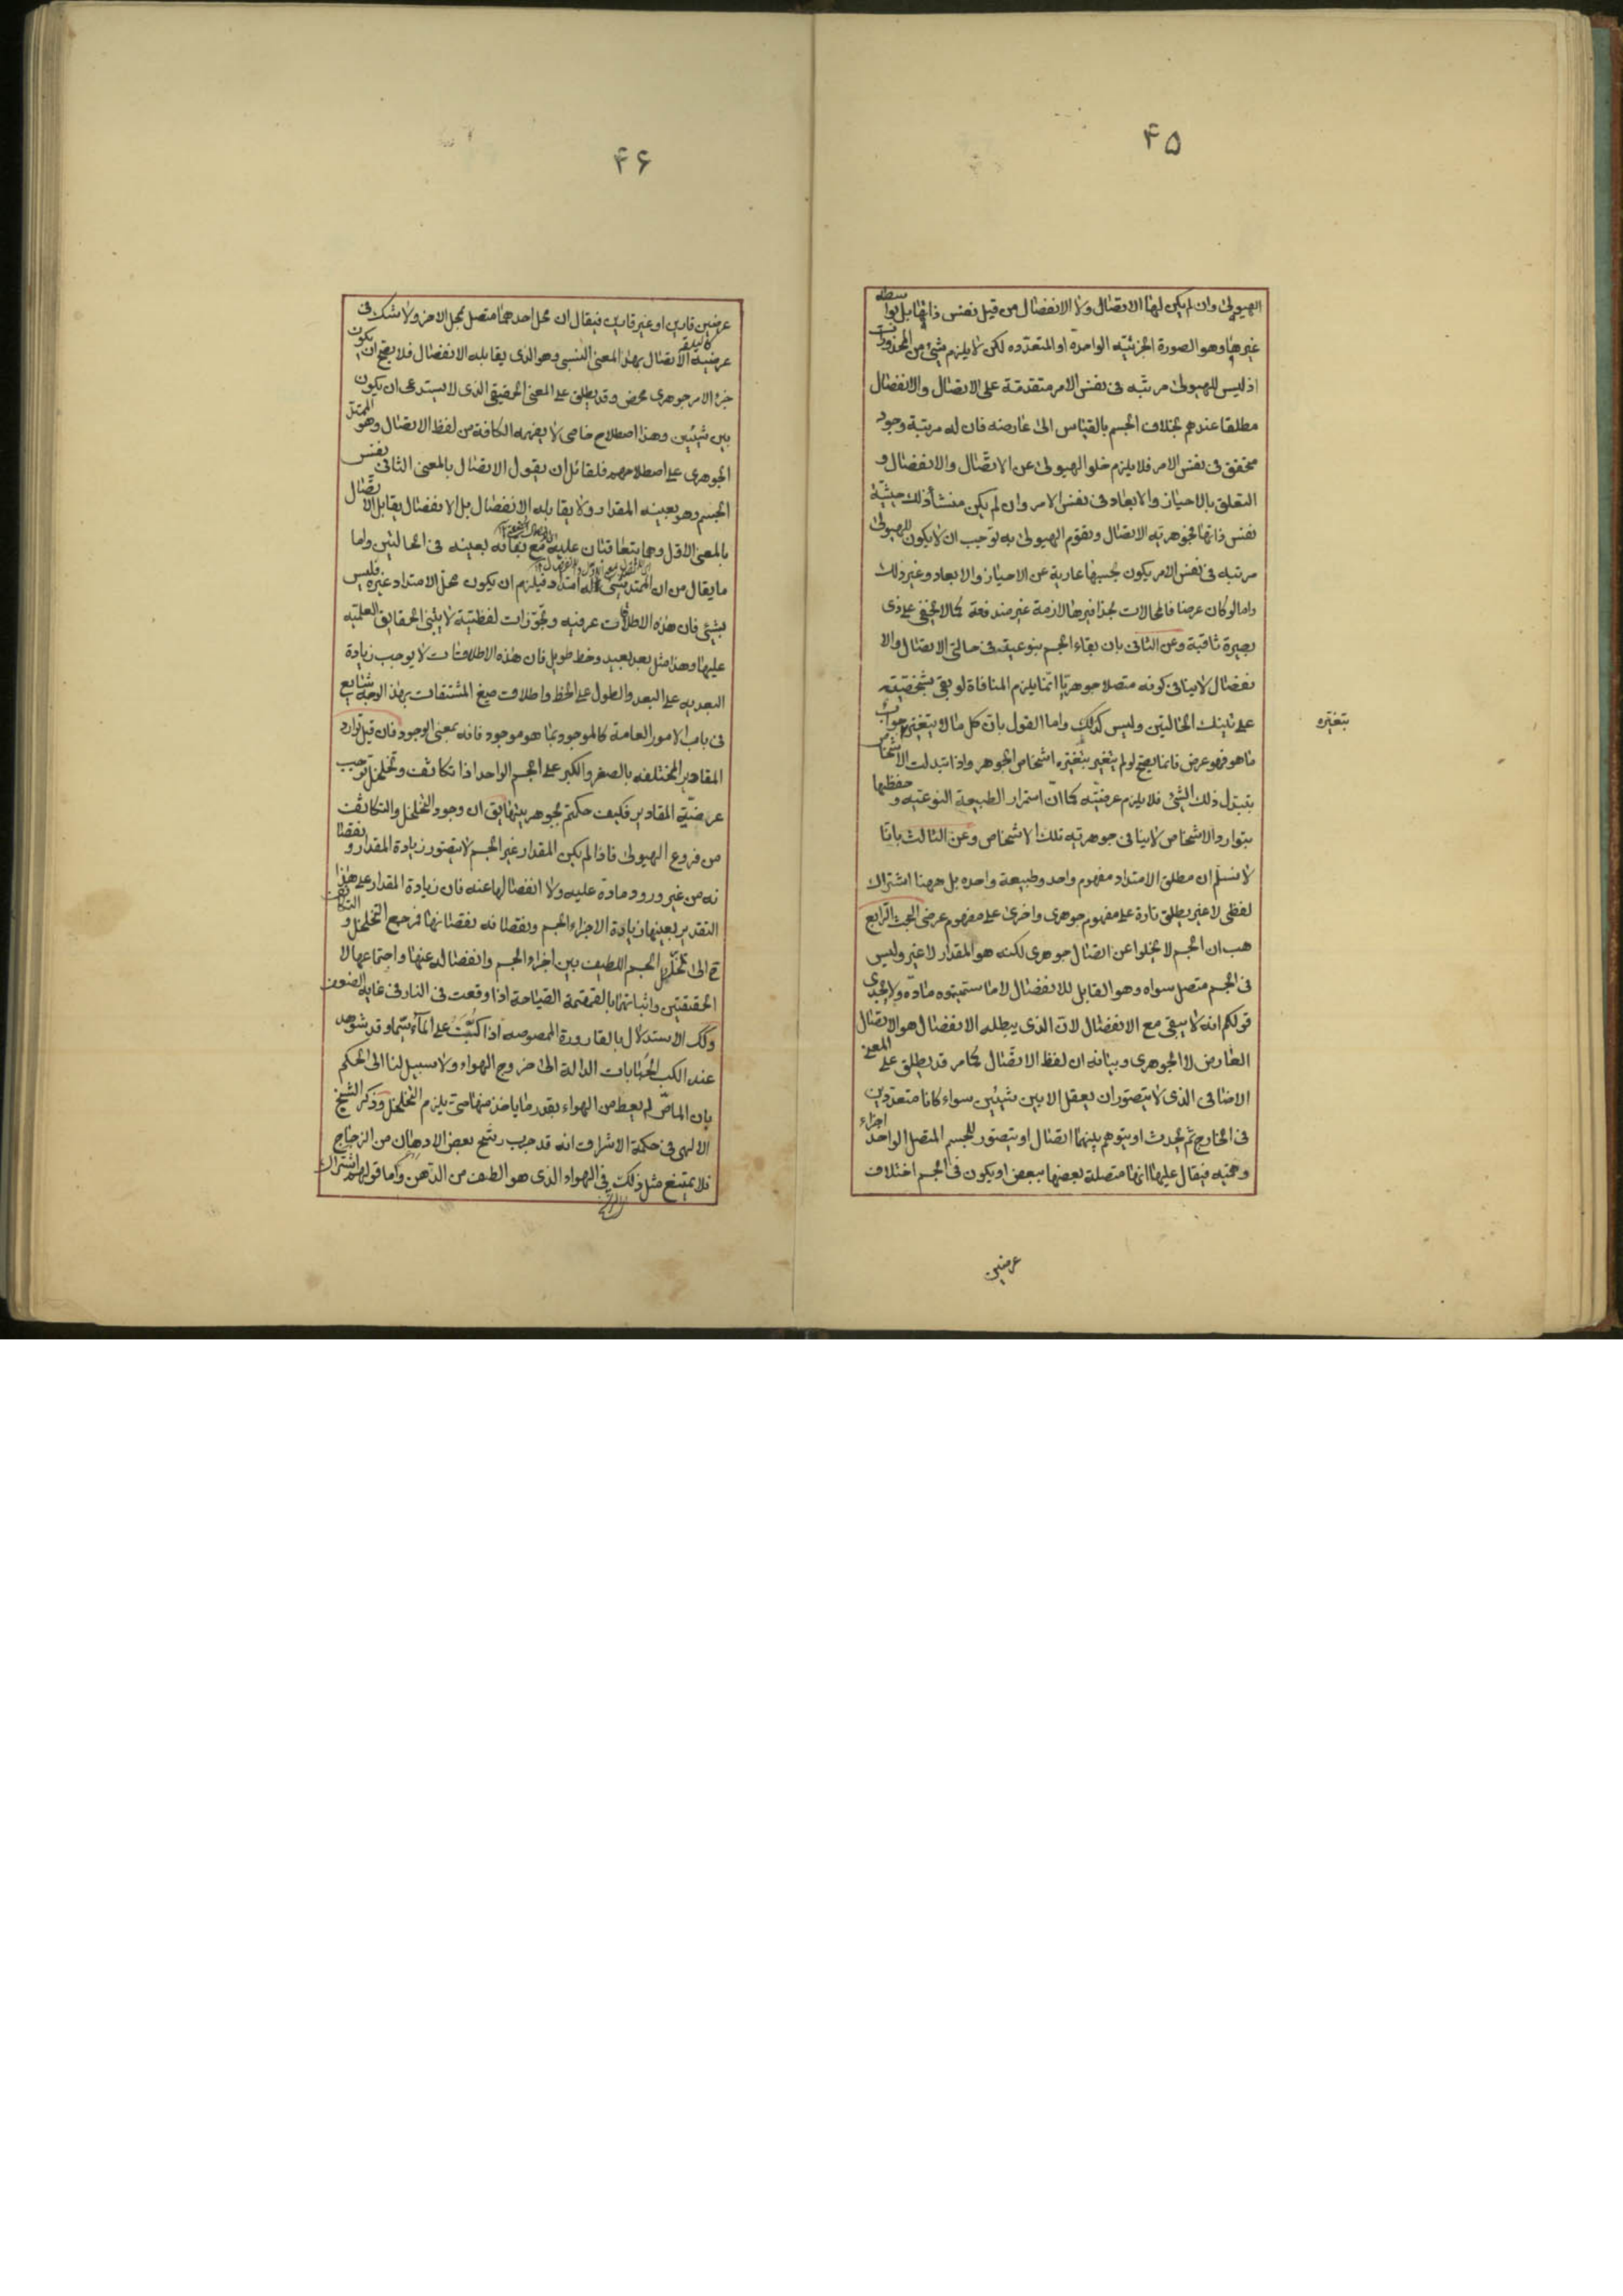 ۴۵
الهیولی وان لم یکن لها الاتصال ولا الانفصال من قبل نفس ذاتها بل بواسطه
غیرها وهو الصورة الجزئیه الواحدة او المتعدده لکن لا یلزم شیئ من المحذورات
اذ لیس للهیولی مرتبه فی نفس الامر متقدمة علی الاتصال والانفصال
مطلقا عندهم بخلاف الجسم بالقیاس الی عارضه فان له مرتبة وجود
متحقق فی نفس الامر فلا یلزم خلو الهیولی عن الاتّصال والانفصال و
التعلق بالاحیاز والابعاد فی نفس الامر وان لم یکن منشأ ذلک حیثیّة
نفس ذاتها فجوهریه الاتصال وتقوّم الهیولی به توجب ان لا یکون للهیولی
مرتبه فی نفس الامر یکون بحسبها عاریة عن الاحیاز والابعاد وغیر ذلک
واما لو کان عرضا فالمحالات بحذافیرها لازمة غیر مندفعة کما لا یخفی علی ذی
بصیرة ثاقبة وعن الثانی بان بقاء الجسم بنوعیته فی حالتی الاتصال والا
نفصال لا ینافی کونه متصلا جوهریّا انّما یلزم المنافاة لو بقی بشخصیّته
علی تینک الحالیتین ولیس کذلک واما القول بان کل ما لا یتغیّر جواب
بتغیّره
ما هو فهو عرض فانما یصح لو لم یتغیر بتغیّره اشخاص الجوهر واذا تبدلت الاشخاص
بتبدل ذلک الشیء فلا یلزم عرضیّته کما ان استمرار الطبیعة النوعیّه وحفظها
بتوارد الاشخاص لا ینافی جوهریّه تلک الاشخاص وعن الثالث بانّا
لا نسلّم ان مطلق الامتداد مفهوم واحد وطبیعة واحده بل ههنا اشتراک
لفظی لا غیر یطلق تارة علی مفهوم جوهری واخری علی مفهوم عرضی البحث الرّابع
هب ان الجسم لا یخلوا عن اتصال جوهری لکنه هو المقدار لا غیر ولیس
فی الجسم متصل سواه وهو القابل للانفصال لا ما سمیتموه مادّه ولا یجدی
قولکم انه لا یبقی مع الانفصال لانّ الذی یبطله الانفصال هو الاتصال
العارض لا الجوهری وبیانه ان لفظ الاتّصال کما مر قد یطلق علی المعنی
الاضافی الذی لا یتصور ان یعقل الا بین شیئین سواء کانا متعددین
فی الخارج ثم یحدث او یتوهم بینهما اتصال او یتصور للجسم المتصل الواحد اجزاء
وهمیّه فیقال علیها انها متصلة بعضها ببعض او یکون فی الجسم اختلاف
عرضین
۴۶
عرضین قارین او غیر قارین فیقال ان محل احدهما متصل بمحل الاخر ولا شک فی
عرضیه الاتصال بهذا المعنی النسبی وهو الذی یقابله الانفصال فلا یصح ان یکون
جزء الامر جوهری محض وقد یطلق علی المعنی الحقیقی الذی لا یستدعی ان یکون
بین شیئین وهذا اصطلاح خاص لا یفهمه الکافة من لفظ الاتصال وهو الممتد
الجوهری علی اصطلاحهم فلقائل ان یقول الاتصال بالمعنی الثانی نفس
الجسم وهو بعینه المقدار ولا یقابله الانفصال بل الانفصال یقابل الاتّصال
بالمعنی الاوّل وهما یتعاقبان علیه مع بقائه بعینه فی الحالتین واما
ما یقال من ان الممتد شیئ له امتداد فیلزم ان یکون محل الامتداد غیره فلیس
بشیئ فان هذه الاطلاقات عرفیه وتجوّزات لفظیّة لا یبتنی الحقایق العلمیّه
علیها وهذا مثل بعد بعید وخط طویل فان هذه الاطلاقات لا یوجب زیادة
البعدیه علی البعد والطول علی الخط واطلاق صیغ المشتقات بهذا الوجه شایع
فی باب الامور العامة کالموجود بما هو موجود فانه بمعنی الوجود فان قیل توارد
المقادیر المختلفه بالصغر والکبر علی الجسم الواحد اذا تکاثف وتخلخل توجب
عرضیّة المقادیر فکیف حکمتم بجوهریتها یق ان وجود التخلخل والتکاثف
من فروع الهیولی فاذا لم یکن المقدار غیر الجسم لا یتصور زیادة المقدار ونقصا
نه من غیر ورود مادة علیه ولا انفصالها عنه فان زیادة المقدار علی هذا
التقدیر بعینها زیادة الاجزاء الجسم ونقصانه نقصانها فرجع التخلخل والتکاثف
ح الی تخلّل الجسم اللطیف بین اجزاء الجسم وانفصاله عنها واجتماعها لا
الحقیقتین واثباتهما بالقمقمة الصیّاحة اذا وقعت فی النار فی غایه الضعف
وکک الاستدلال بالقارورة الممصوصه اذا کُبَّت علی المآء سیّما وقد شوهد
عند الکب الحبابات الدالة الی خروج الهواء ولا سبیل لنا الی الحکم
بان الماصّ لم یعط من الهواء بقدر ما یاخذ منها حتی یلزم التخلخل وذکر الشیخ
الالهی فی حکمة الاشراق انه قد جرب رشح بعض الادهان من الزجاج
فلا یمتنع مثل ذلک فی الهواء الذی هو الطف من الدّهن واما قولهم اشتراک